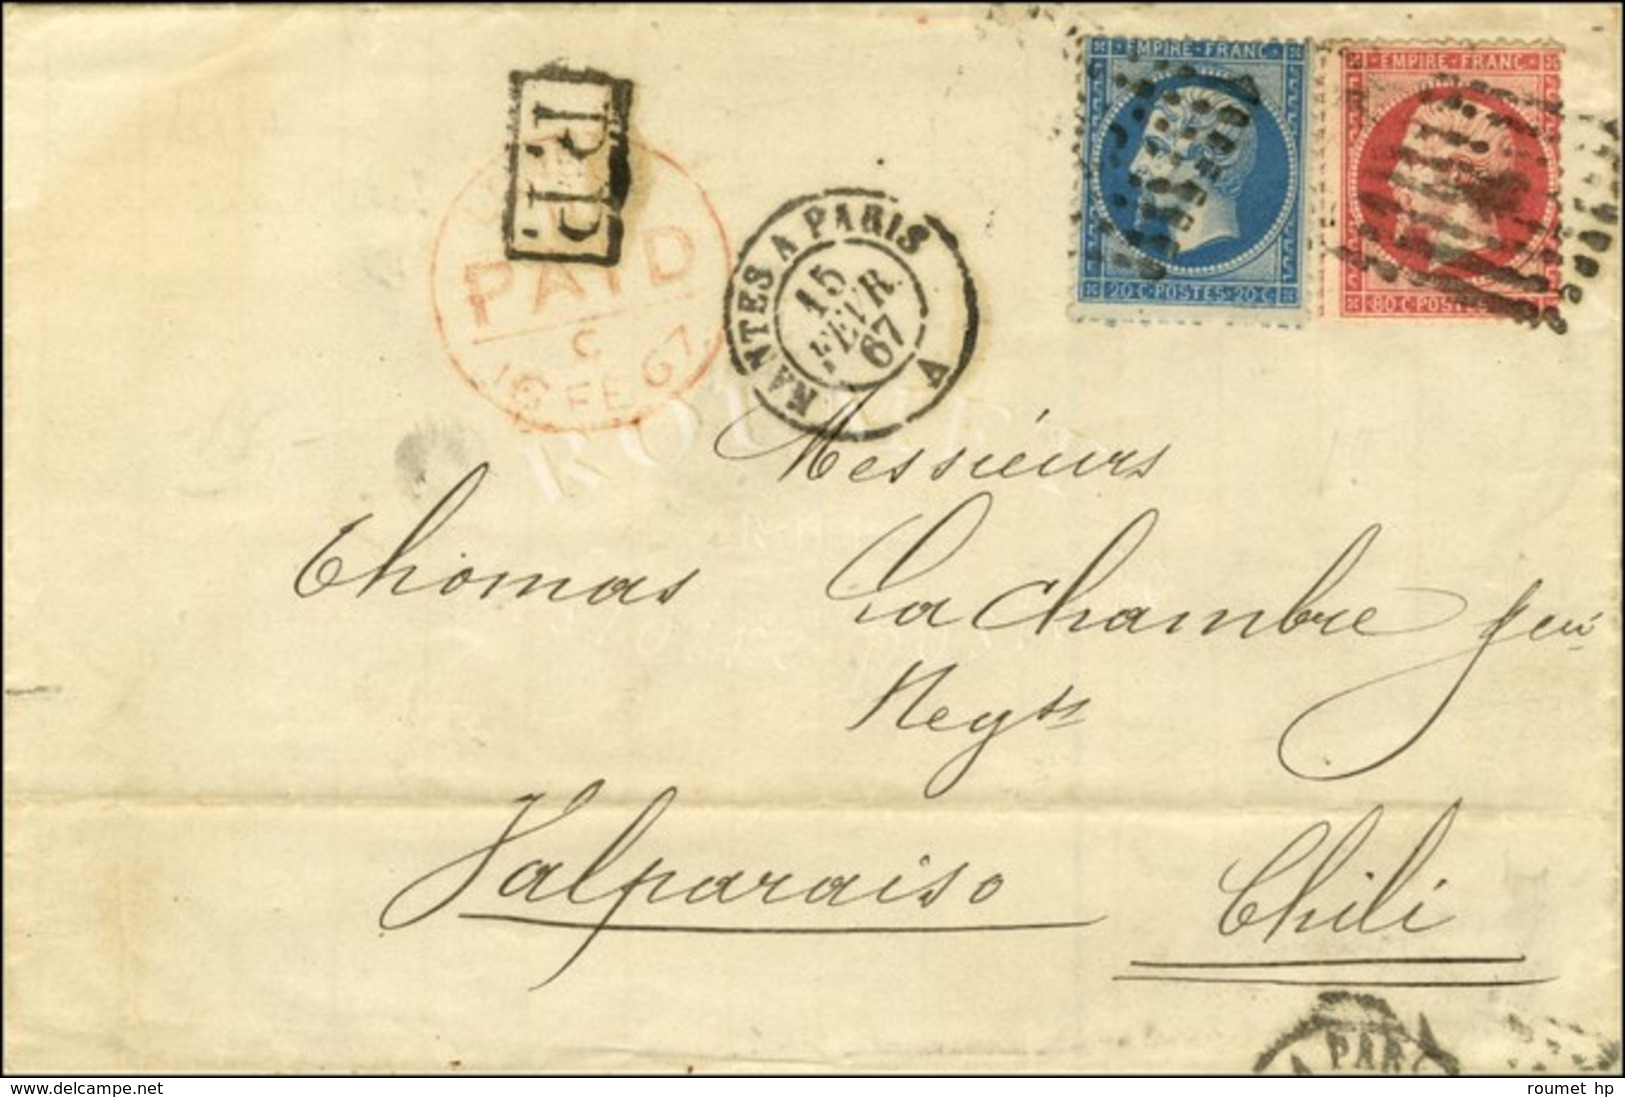 EMPIRE · FRANC ·
20 C · POSTES · 20 C ·
EMPIRE · FRANC ·
80 C · POSTES
P.P.
PAID
C
16 FE 67
NANTES A PARIS
15
FEVR
67
A
ROUMET
Messieurs
Thomas La Chambre
Negts
Valparaiso Chili
PAR
roumet hp